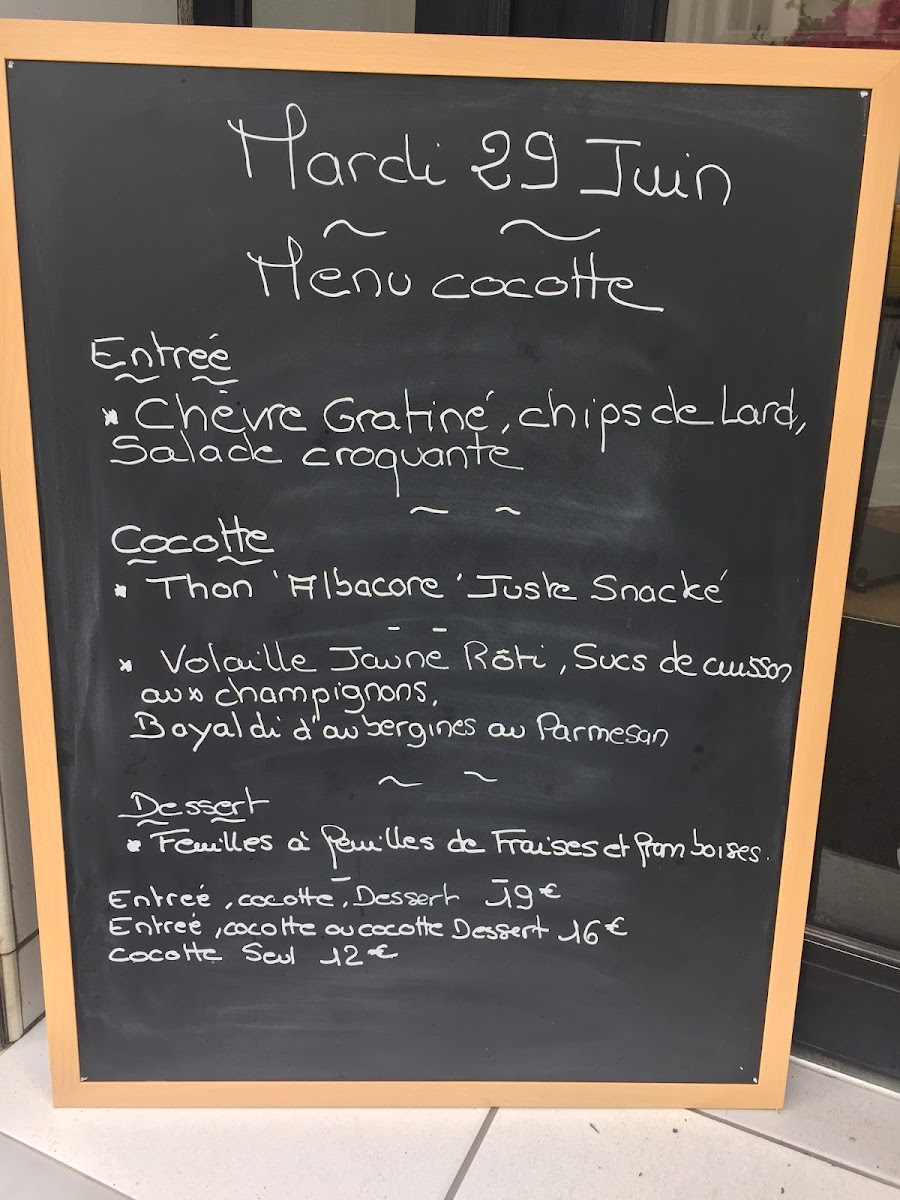 Mardi 29 Juin
Menu cocotte
Entreé
* Chèvre Gratiné, chips de Lard,
Salade croquante
Cocotte
* Thon 'Albacore' Juste Snacké
* Volaille Jaune Rôti, Sucs de cuisson
aux champignons,
Bayaldi d'aubergines au Parmesan
Dessert
* Feuilles à feuilles de Fraises et framboises.
Entreé, cocotte, Dessert 19€
Entreé, cocotte ou cocotte Dessert 16€
Cocotte Seul 12€